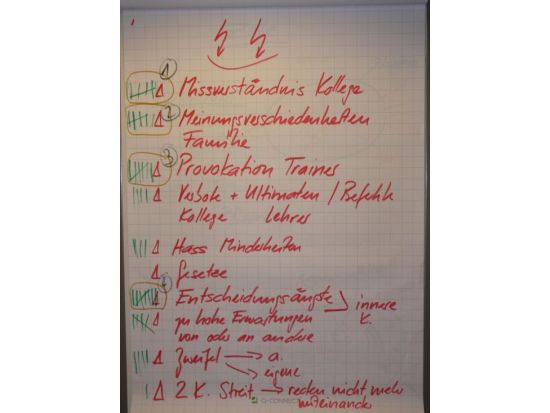 1
Missverständnis Kollege
2
Meinungsverschiedenheiten
Familie
3
Provokation Trainer
Verbote + Ultimaten / Befehle
Kollege Lehrer
Hass Minderheiten
Gesetze
Entscheidungsängste
innere
K.
zu hohe Erwartungen
von oder an andere
Zweifel → a.
→ eigene
2 K. Streit → reden nicht mehr
miteinander
Q-CONNECT